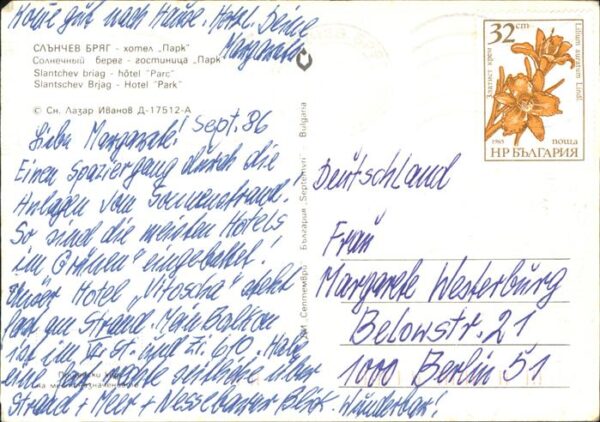 Komme gut nach Hause. Herzl. Deine
Margarete
СЛЪНЧЕВ БРЯГ - хотел „Парк"
Солнечный берег - гостиница „Парк"
Slantchev briag - hôtel "Parc"
Slantschev Brjag - Hotel "Park"
© Сн. Лазар Иванов Д-17512-А
Liebe Margarete! Sept. 86
Einen Spaziergang durch die
Anlagen vom Sonnenstrand!
So sind die meisten Hotels
im Grünen" eingebettet!
Unser Hotel „Vitoscha" steht
fast am Strand. Mein Balkon
ist im VI. St. und Zi. 610. Habe
eine seitliche über
Strand + Meer + Nessebarer Blick. Wunderbar!
България „Септември" Bulgaria
32 cm
Златист крем
Lilium auratum Lindl.
1985 поща
НР БЪЛГАРИЯ
Deutschland
Frau
Margarete Westerburg
Belowstr. 21
1000 Berlin 51